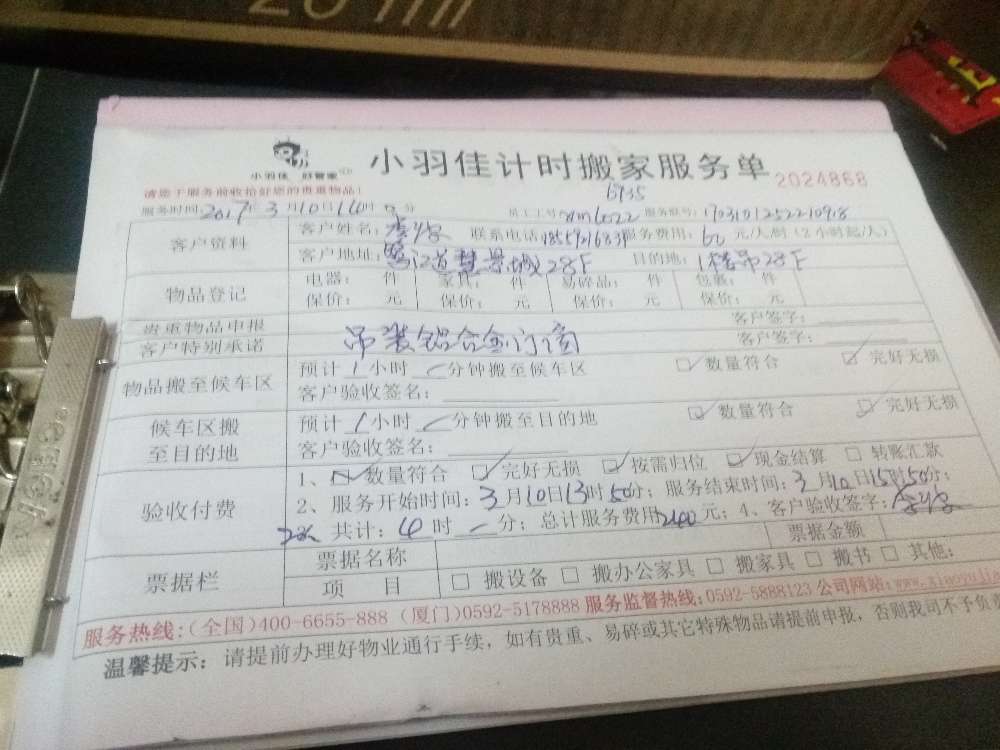 小羽佳 好管家
小羽佳计时搬家服务单
2024868
请您于服务前收拾好您的贵重物品!
6735
服务时间:2017年3月10日14时 分 员工工号 服务账号:
客户资料
客户姓名: 联系电话 服务费用:60元/人/时(2小时起/人)
客户地址:鹭江道慧景城28F 目的地:1楼吊28F
物品登记
电器: 件 家具: 件 易碎品: 件 包裹: 件
保价: 元 保价: 元 保价: 元 保价: 元
贵重物品申报 客户签字:
客户特别承诺 吊装铝合金门窗 客户签字:
物品搬至候车区
预计1小时 分钟搬至候车区 数量符合 完好无损
客户验收签名:
候车区搬至目的地
预计1小时 分钟搬至目的地 数量符合 完好无损
客户验收签名:
验收付费
1、数量符合 完好无损 按需归位 现金结算 转账汇款
2、服务开始时间:3月10日13时50分;服务结束时间:3月10日15时50分;
2人 共计:4时 分;总计服务费用240元;4、客户验收签字:
票据栏
票据名称 票据金额
项 目 搬设备 搬办公家具 搬家具 搬书 其他:
服务热线:(全国)400-6655-888 (厦门)0592-5178888 服务监督热线:0592-5888123 公司网站:www.xiaoyujia
温馨提示:请提前办理好物业通行手续,如有贵重、易碎或其它特殊物品请提前申报,否则我司不予负